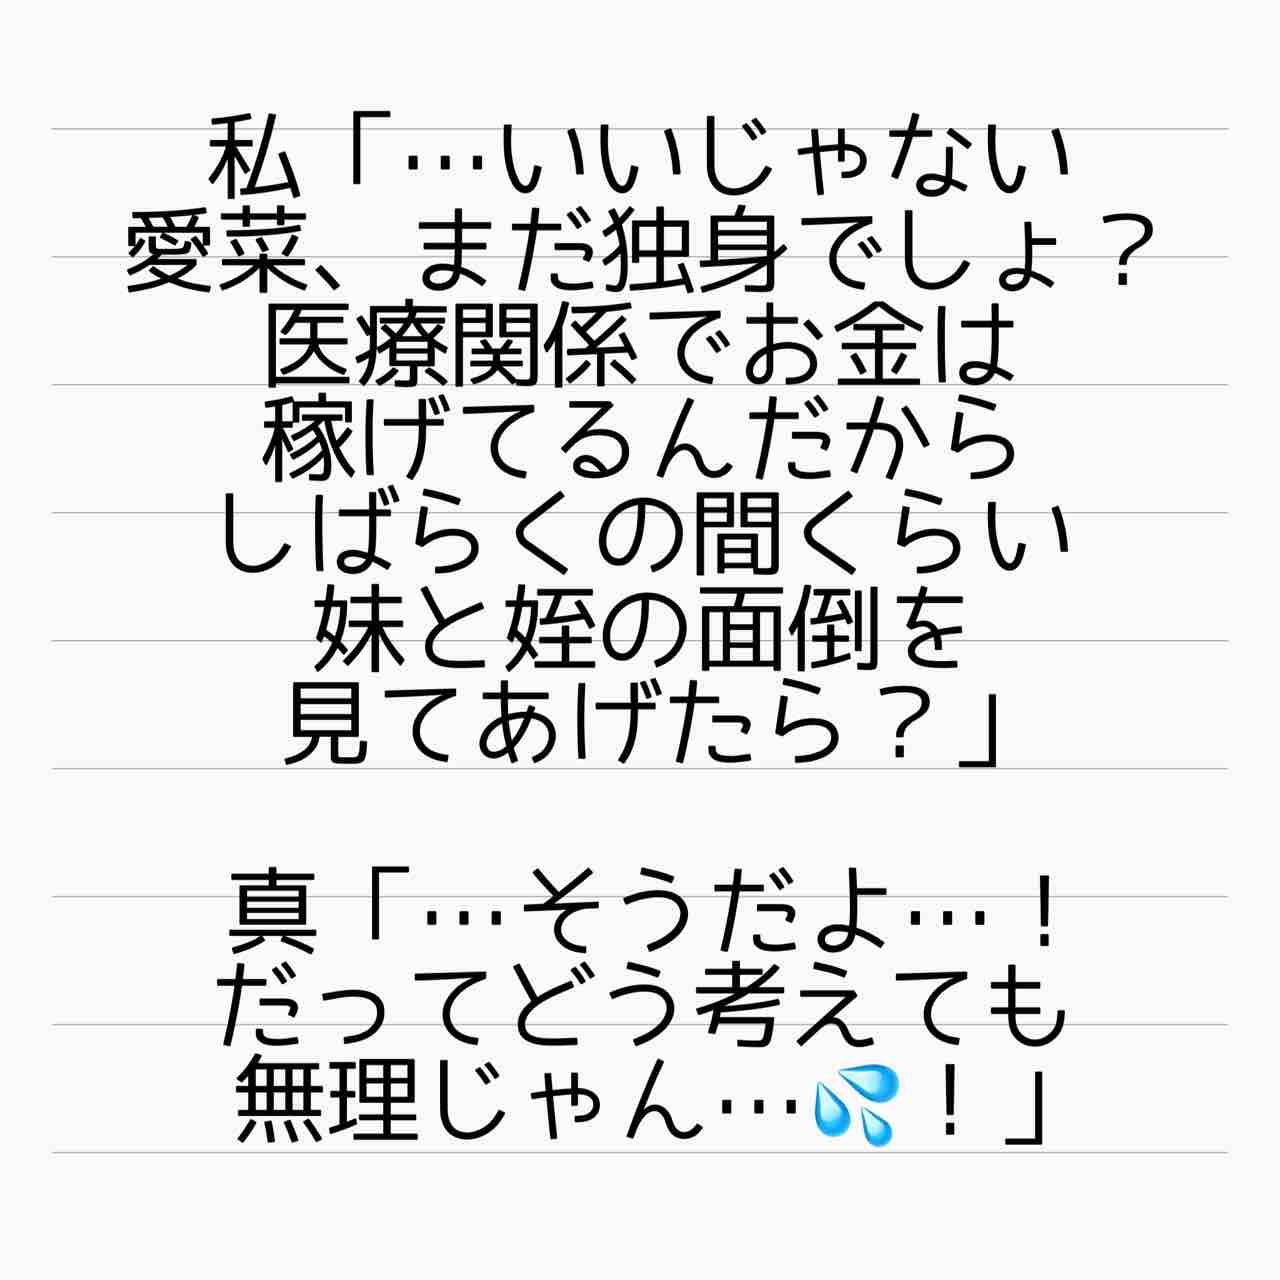 私「…いいじゃない
愛菜、まだ独身でしょ？
医療関係でお金は
稼げてるんだから
しばらくの間くらい
妹と姪の面倒を
見てあげたら？」
真「…そうだよ…！
だってどう考えても
無理じゃん…💦！」